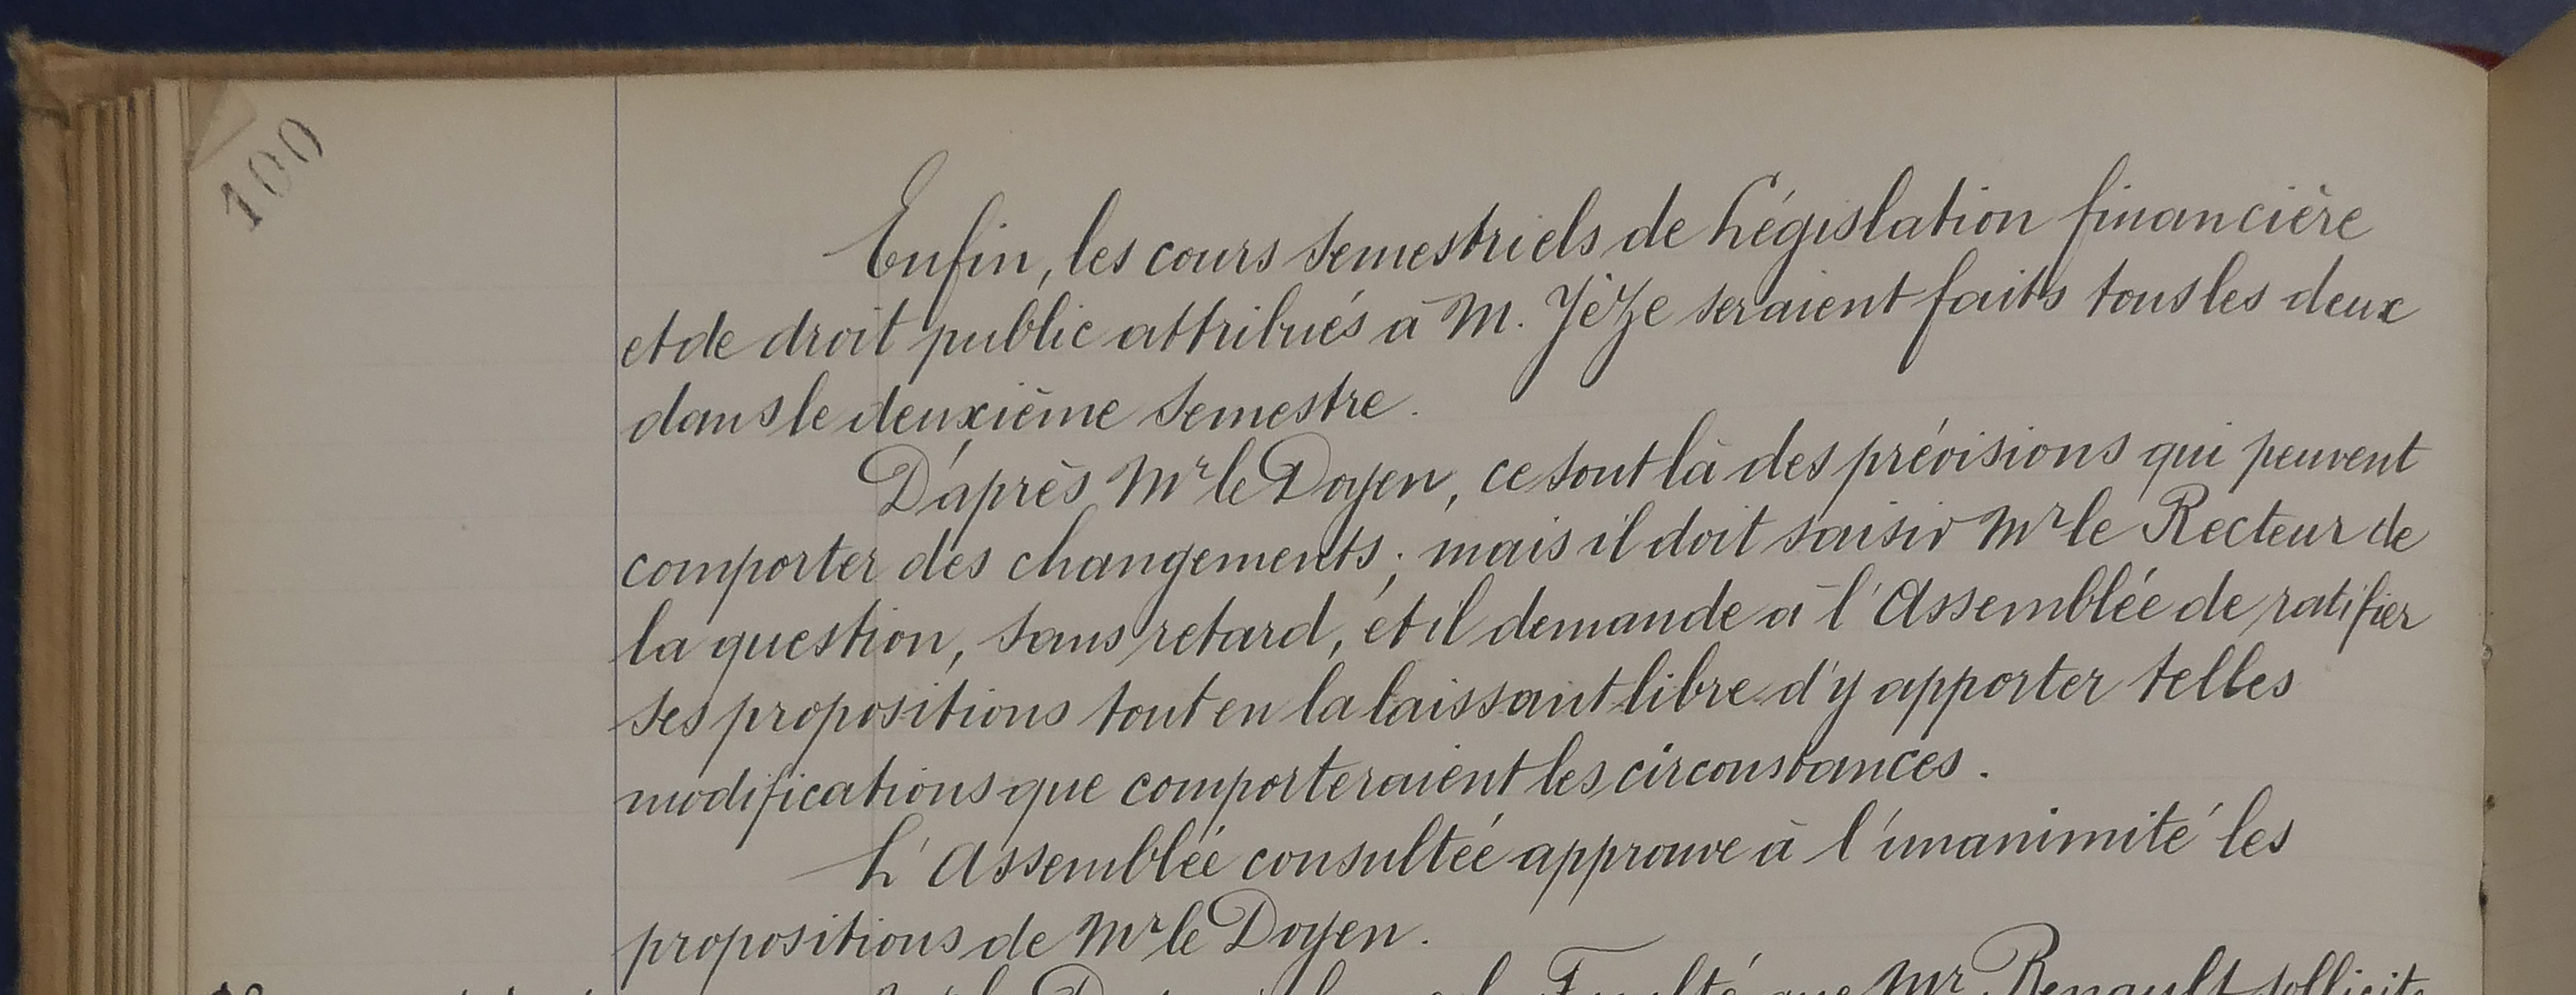 100
Enfin, les cours semestriels de Législation financière
et de droit public attribués à M. Jèze seraient faits tous les deux
dans le deuxième semestre.
D'après Mr le Doyen, ce sont là des prévisions qui peuvent
comporter des changements; mais il doit saisir Mr le Recteur de
la question, sans retard, et il demande à l'Assemblée de ratifier
ses propositions tout en la laissant libre d'y apporter telles
modifications que comporteraient les circonstances.
L'Assemblée consultée approuve à l'unanimité les
propositions de Mr le Doyen.
Faculté que Mr Renault sollicite